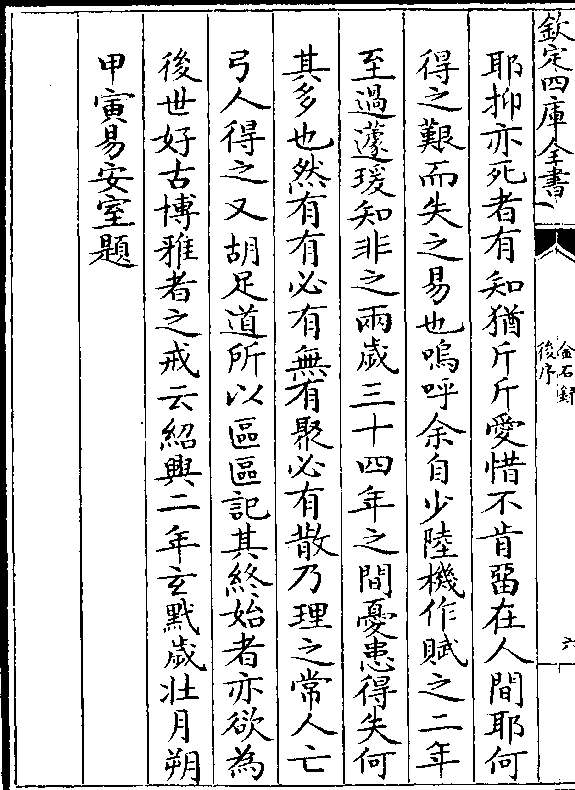 欽定四庫全書
金石錄
後序
六
耶抑亦死者有知猶斤斤愛惜不肯留在人間耶何
得之艱而失之易也嗚呼余自少陸機作賦之二年
至過蘧瑗知非之兩歲三十四年之間憂患得失何
其多也然有有必有無有聚必有散乃理之常人亡
弓人得之又胡足道所以區區記其終始者亦欲為
後世好古博雅者之戒云紹興二年玄黓歲壯月朔
甲寅易安室題